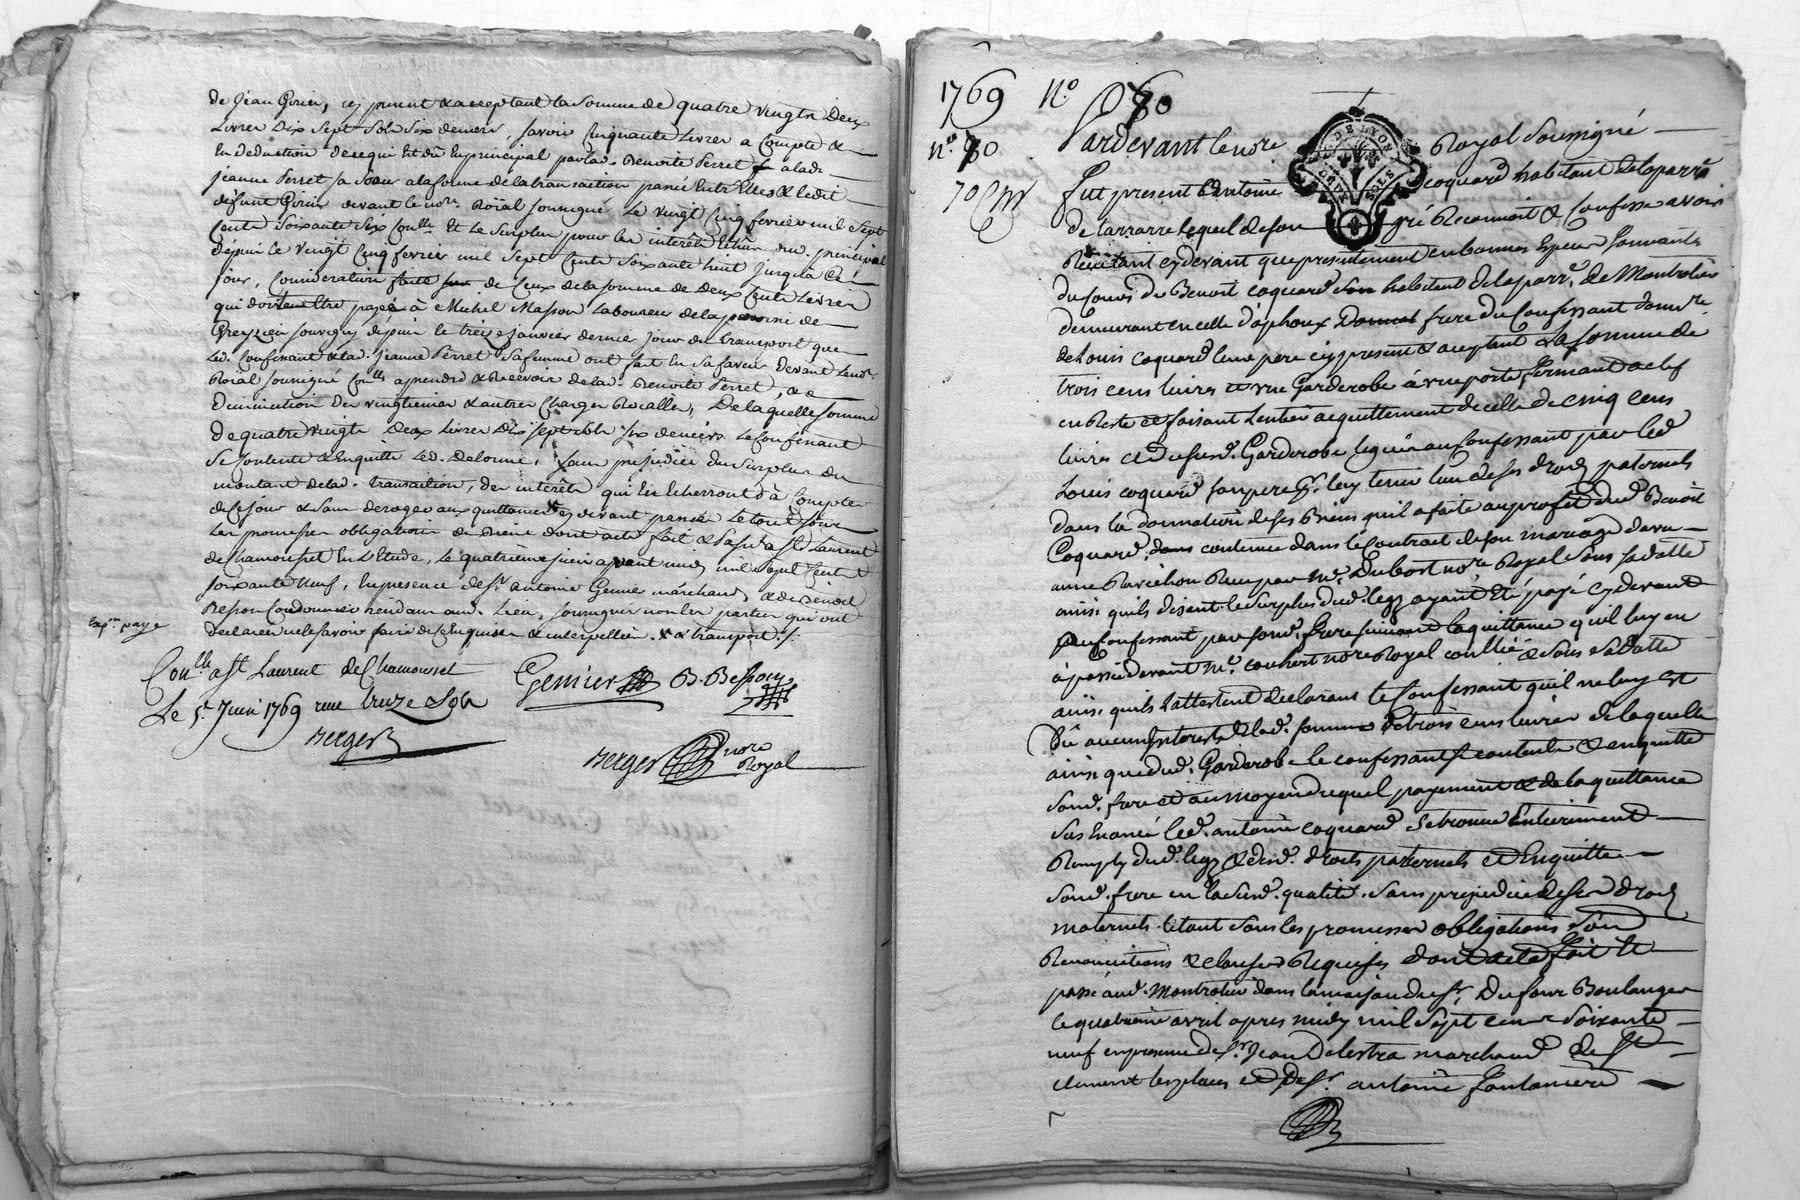 de Jean Girin, cy present & acceptant la Somme de quatre vingt Deux
Livres Dix Sept Sols Six deniers, Savoir Cinquante Livres a Compte &
En deduction de ce qui Est dû En principal par lad. Benoite Perret a lad.
Jeanne Perret Sa Soeur a la forme de la transaction passée Entr'Elles & ledit
défunt Girin devant le no.re Roïal Soussigné Le vingt Cinq fevrier mil Sept
Cents Soixante Six Con.llé Et Le Surplus pour les interêts Echûs du principal
depuis le vingt Cinq fevrier mil Sept Cents Soixante huit Jusqu'à Ce
jour, Consideration faite de Ceux de la Somme de Deux Cents Livres
qui doivent Etre payés à Michel Masson Laboureur de la paroisse de
Greyzieu Souvigny depuis le treize Janvier dernier jour du transport que
Led. Confessant & lad. Jeanne Perret Sa femme ont fait En Sa faveur devant Le no.re
Roïal Soussigné Con.llé a prendre & Recevoir de lad. Benoite Perret,
Diminution des vingtiemes & autres Charges Roialles, De laquelle Somme
De quatre vingts Deux Livres Dix Sept Sols Six deniers Le Confessant
Se Contente & Enquitte Led. Delorme, Sans prejudice du Surplus du
montant de lad. transaction, des interêts qui En Echerront à Compter
de Ce jour & Sans deroger aux quittances cy devant passées Le tout Sous
Les promesses obligations de Biens dont acte fait & Passé a St Laurent
de Chamousset En L'Etude, Le quatrieme juin avant midy mil Sept Cents
Soixante Neuf, En presence de Sr antoine Genier marchand, & de Benoit
Besson Cordonnier résidants aud. Lieu, Soussignés non les parties qui ont
declaré ne le Savoir faire de Ce Enquises & interpellées. & transport ./.
Exp.on payé
Con.llé a St Laurent de Chamousset
Le 5e Juin 1769 reçu treize Sols
Berger
Genier B. Besson
Berger no.re Royal
1769 N.o 80
n.o 80
Pardevant le no.re Royal Soussigné
DE LYON
DEUX SOLS
Fut present antoine coquard habitant de la parr.e
de Larrarre lequel de son gré Reconnoit & Confesse avoir
Receu tant cy devant que presentement en bonnes Especes Sonnants
du Sieur Benoit coquard habitant de la parr.e de Montrotier
demeurant en celle d'aphoux frere du Confessant donat.re
de Louis coquard leur pere icy present & aceptant La Somme de
trois cens livres et une Garderobe à une porte fermant a clef
en Reste et faisant L'entier acquittement de celle de cinq cens
livres et de susd. Garderobe leguée au Confessant par led.
Louis coquard Son pere p.r luy tenir lieu de ses droits paternels
dans la donnation de ses Biens qu'il a faite au profit dud. Benoit
Coquard, contenue dans le Contract de son mariage d'avec
anne Ravichon Receu par M.e Dubost no.re Royal Sous Sa datte
ainsi qu'ils disent le Surplus dud. legs ayant Eté payé cy devant
au Confessant par sond. frere suivant la quittance qu'il luy en
a passé devant M.e couhert no.re Royal conllée & Sous Sa datte
ainsi qu'ils l'attestent declarant le Confessant qu'il ne luy est
dû aucuns interests de lad. somme de trois cens livres de laquelle
ainsi que dud. Garderobe le confessant se contente & en quitte
sond. frere et au moyen duquel payement & de la quittance
sus Enoncée led. antoine coquard se trouve Entierement
Remply dud. legs & desd. droits paternels et Enquitte
Sond. frere en la susd. qualité, Sans prejudice de ses droits
maternels. le tout sous les promesses obligations Soumd.
Renonciations & clauses Requises dont acte fait &
passé aud. Montrotier dans la maison du Sr. Dufour Boulanger
le quatrieme avril apres midy mil Sept cens Soixante
neuf en presence de Sr. Jean Delestra marchand de St
clement les places et de Sr. antoine Fontaniere